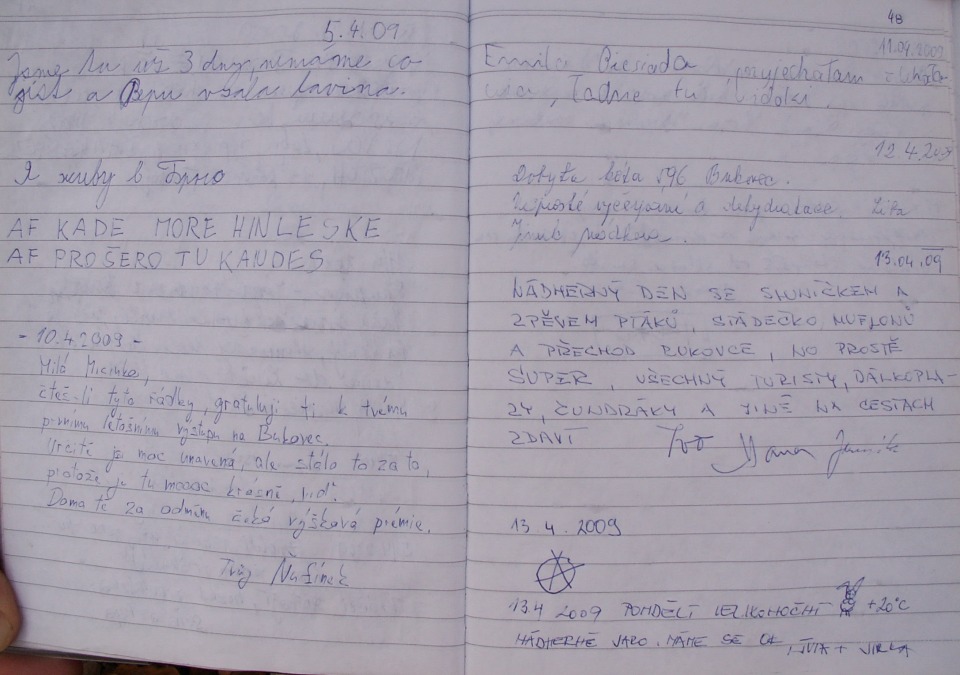 5.4.09
Jsme tu už 3 dny, nemáme co
jíst a Pepu vzala lavina.
Я живу в Брно
AF KADE MORE HINLESKE
AF PROŠERO TU KANDES
- 10.4.2009 -
Milá Micinko,
čteš-li tyto řádky, gratuluji ti k tvému
prvnímu letošnímu výstupu na Bukovec.
Určitě jsi moc unavená, ale stálo to za to,
protože je tu moooc krásně, viď.
Doma tě za odměnu čeká výšková prémie.
Tvůj Ňufínek
48
11.04.2009
Emilia Biesiada, przyjechałam z
, ładne tu widoki.
12.4.2009
Dobyta kóta 596 Bukovec.
Naprosté vyčerpání a dehydratace.
13.04.09
NÁDHERNÝ DEN SE SLUNÍČKEM A
ZPĚVEM PTÁKŮ, STÁDEČKO MUFLONŮ
A PŘECHOD BUKOVCE, NO PROSTĚ
SUPER, VŠECHNY TURISTY, DÁLKOPLA-
ZY, ČUNDRÁKY A JINÉ NA CESTÁCH
ZDAVÍ Ivo Hana
13 4. 2009
A
13.4 2009 PONDĚLÍ VELIKONOČNÍ +20°C
NÁDHERNÉ JARO. MÁME SE OK,